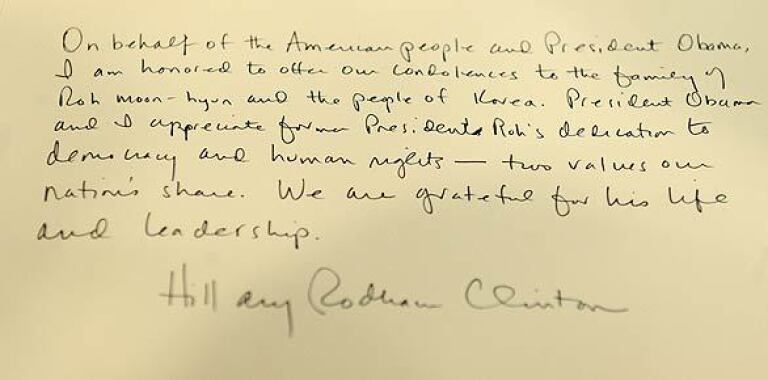 On behalf of the American people and President Obama,
I am honored to offer our condolences to the family of
Roh Moon-hyun and the people of Korea. President Obama
and I appreciate former President Roh's dedication to
democracy and human rights — two values our
nation's share. We are grateful for his life
and leadership.
Hillary Rodham Clinton